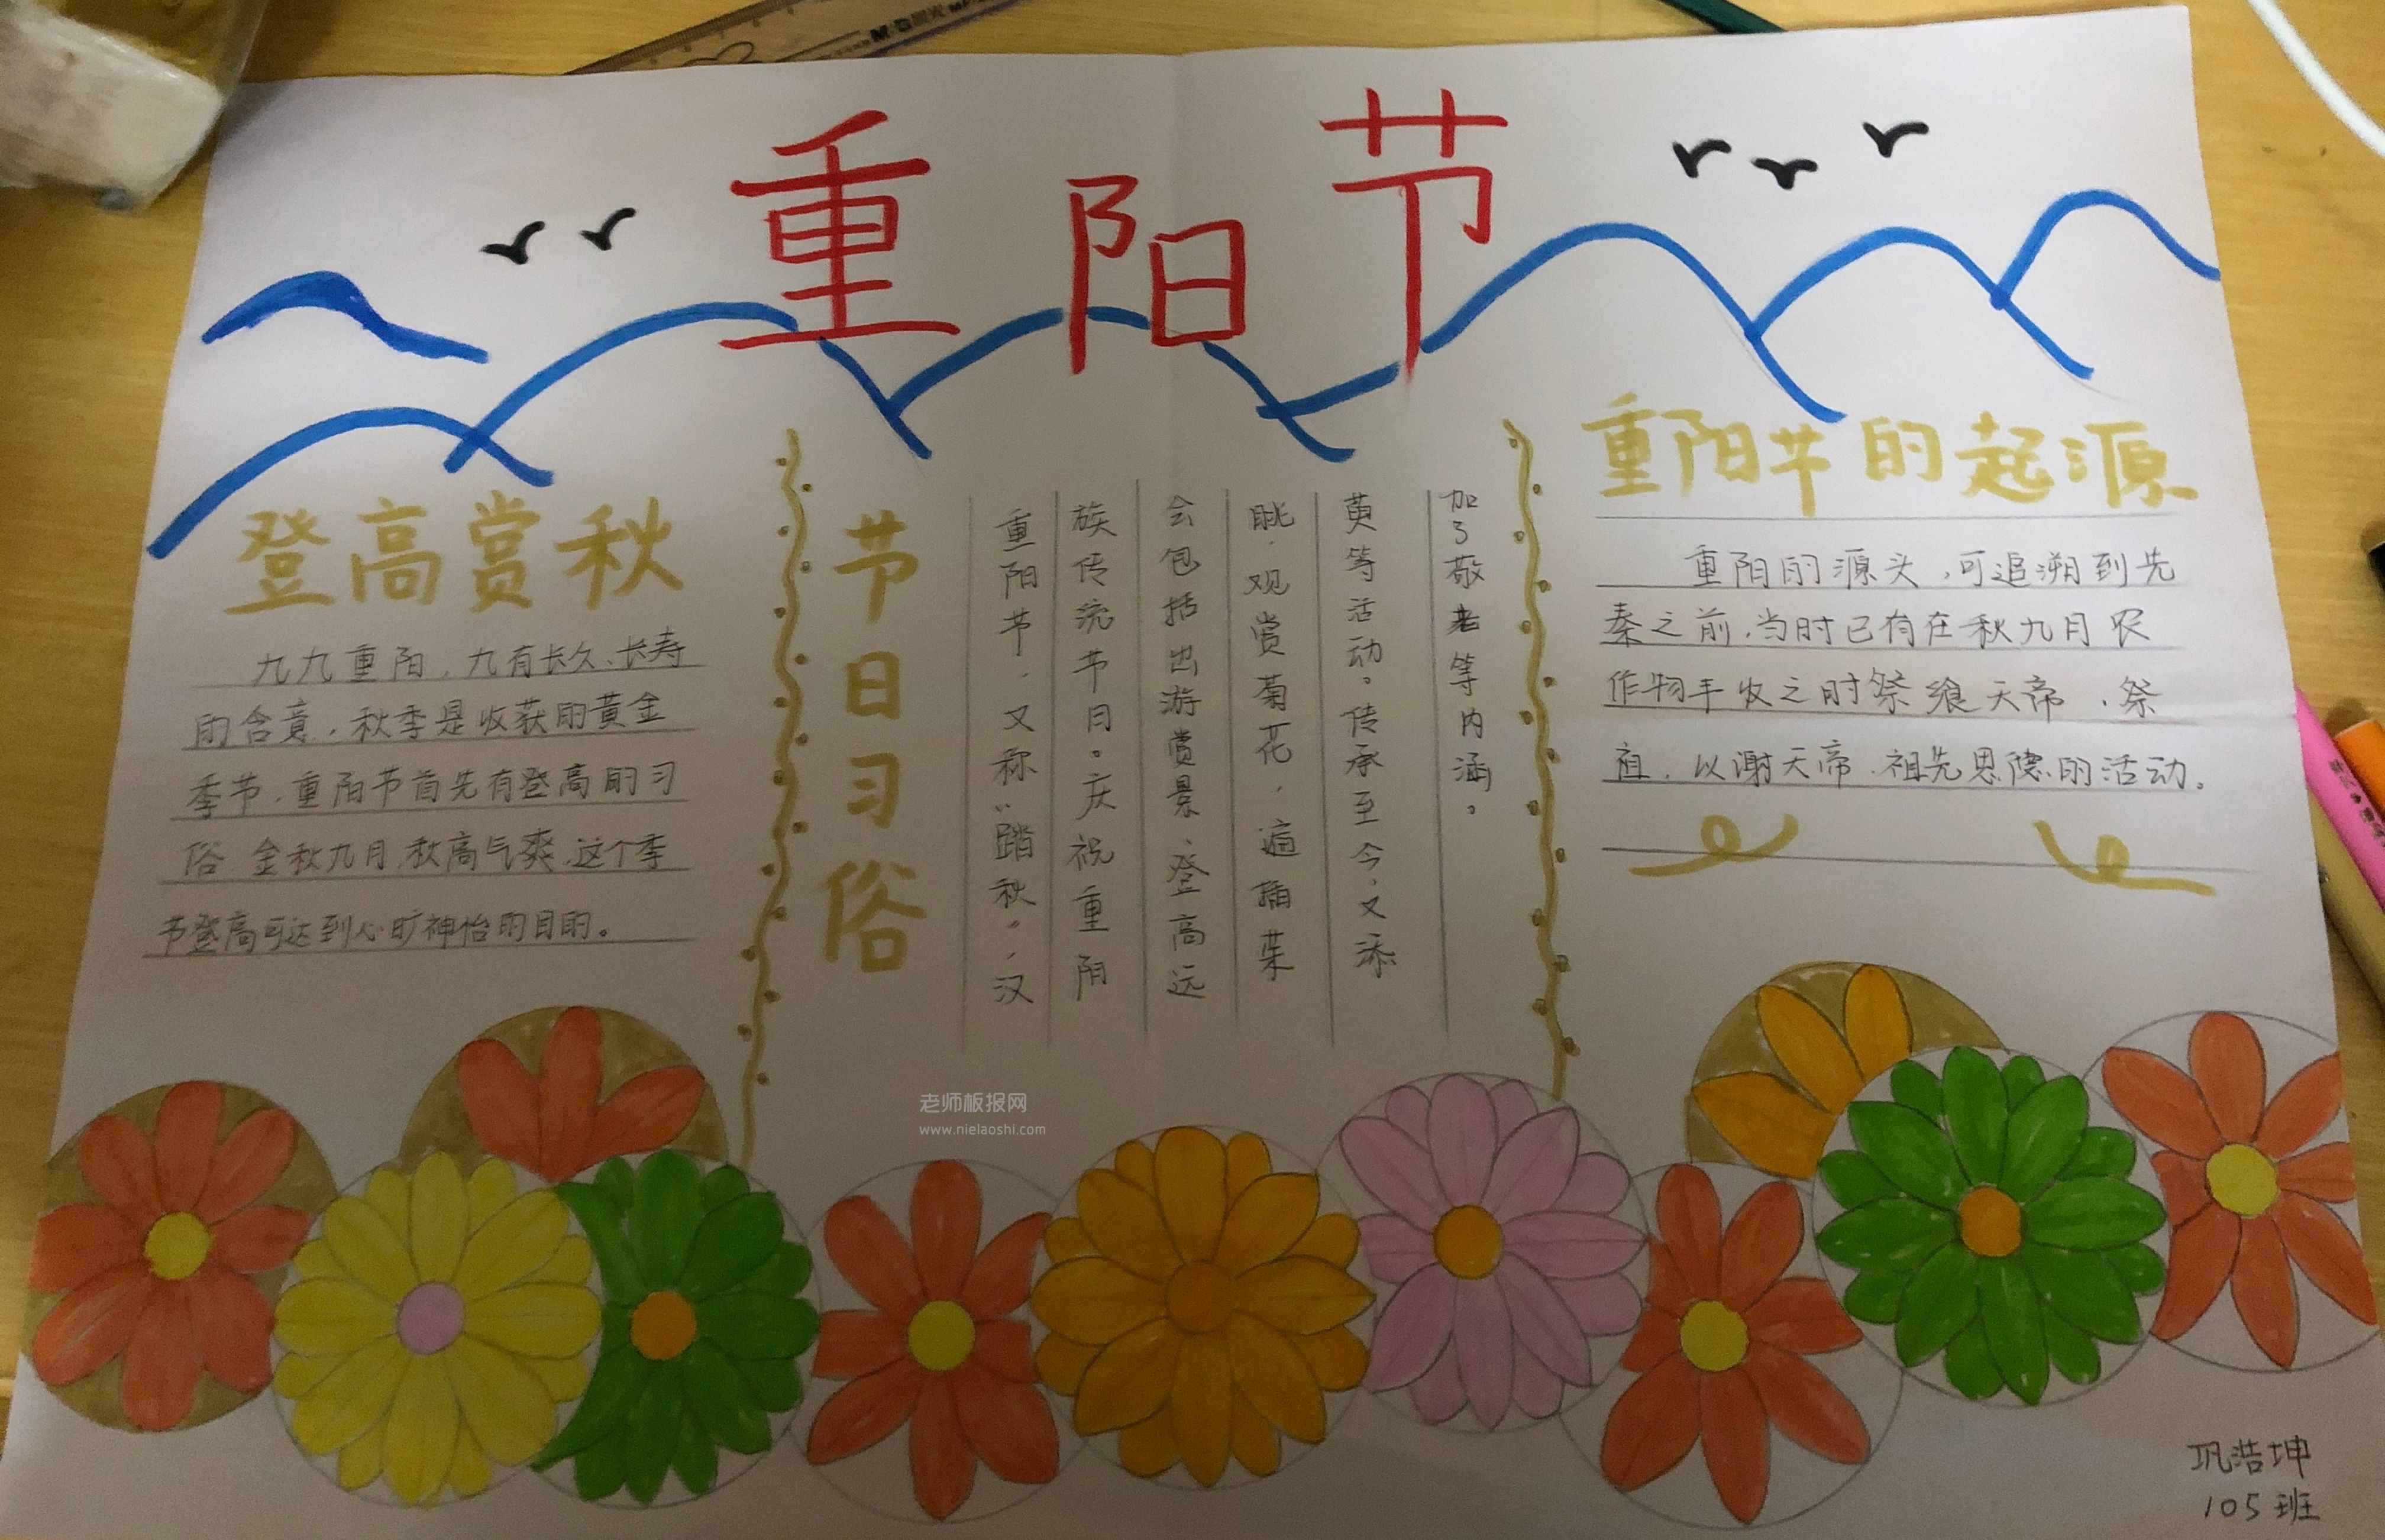 重阳节
登高赏秋
九九重阳，九有长久、长寿
的含意，秋季是收获的黄金
季节，重阳节首先有登高的习
俗，金秋九月，秋高气爽，这个季
节登高可达到心旷神怡的目的。
节日习俗
重阳节，又称“踏秋”，汉
族传统节日。庆祝重阳
会包括出游赏景、登高远
眺、观赏菊花，遍插茱
萸等活动。传承至今，又添
加了敬老等内涵。
重阳节的起源
重阳的源头，可追溯到先
秦之前，当时已有在秋九月农
作物丰收之时祭飨天帝，祭
祖，以谢天帝、祖先恩德的活动。
老师板报网
www.nielaoshi.com
巩浩坤
105班